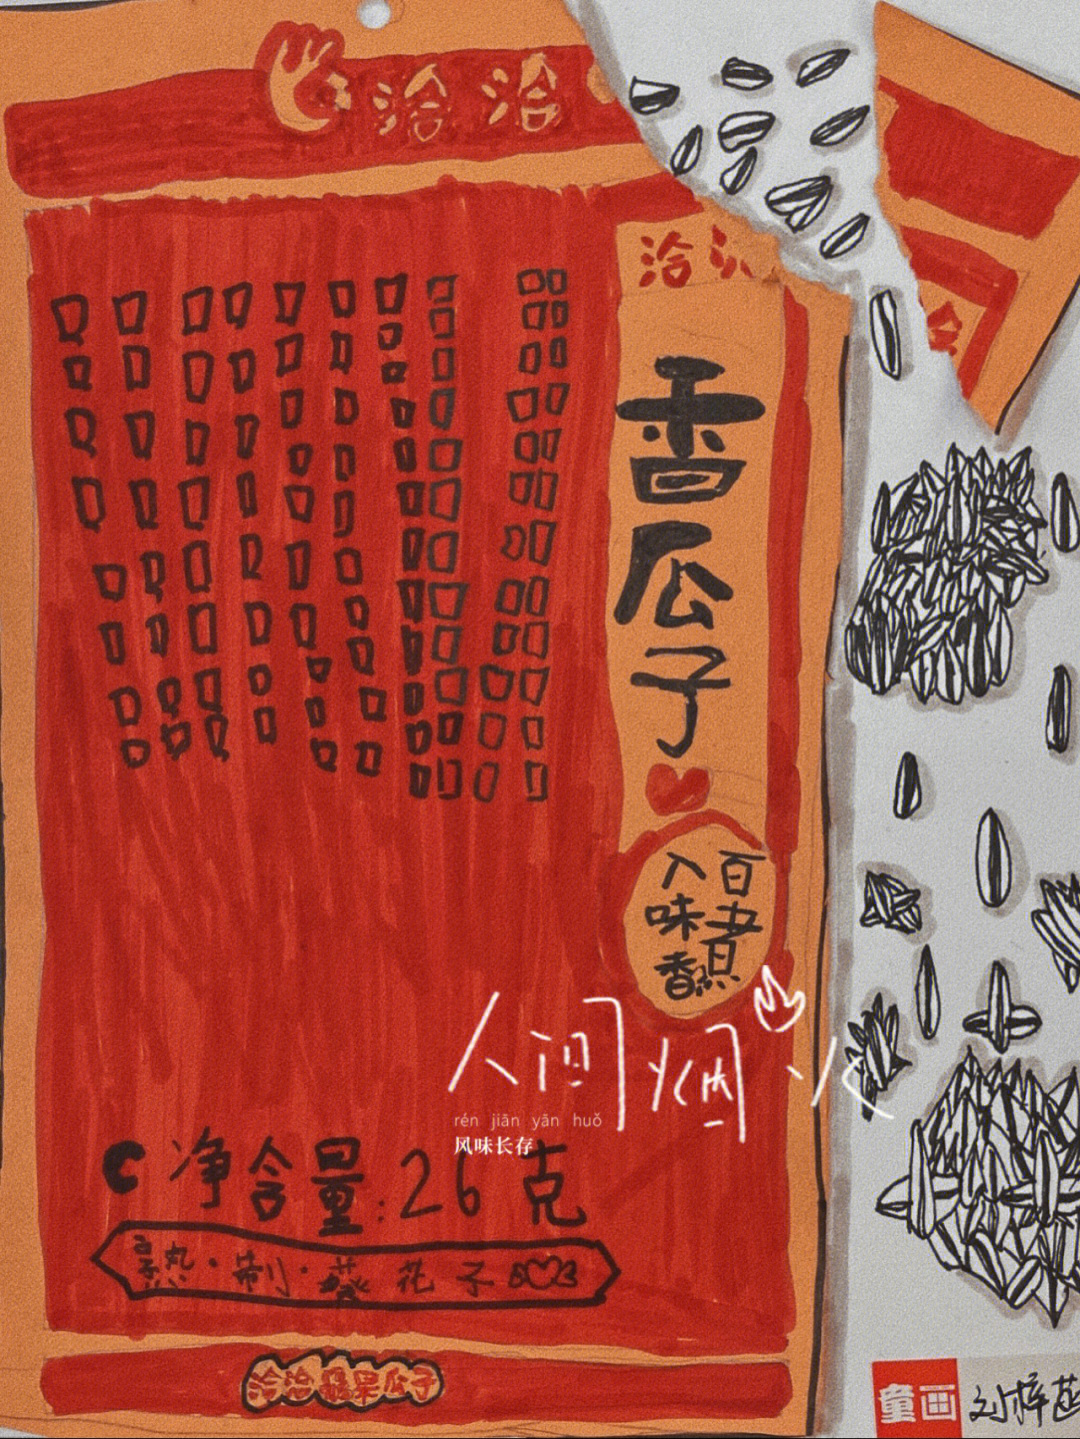 洽洽
洽
香瓜子
百煮
入味香
人间烟火
rén jiān yān huǒ
风味长存
净含量:26克
熟·制·葵花子
洽洽糖果瓜子
童画
刘梓